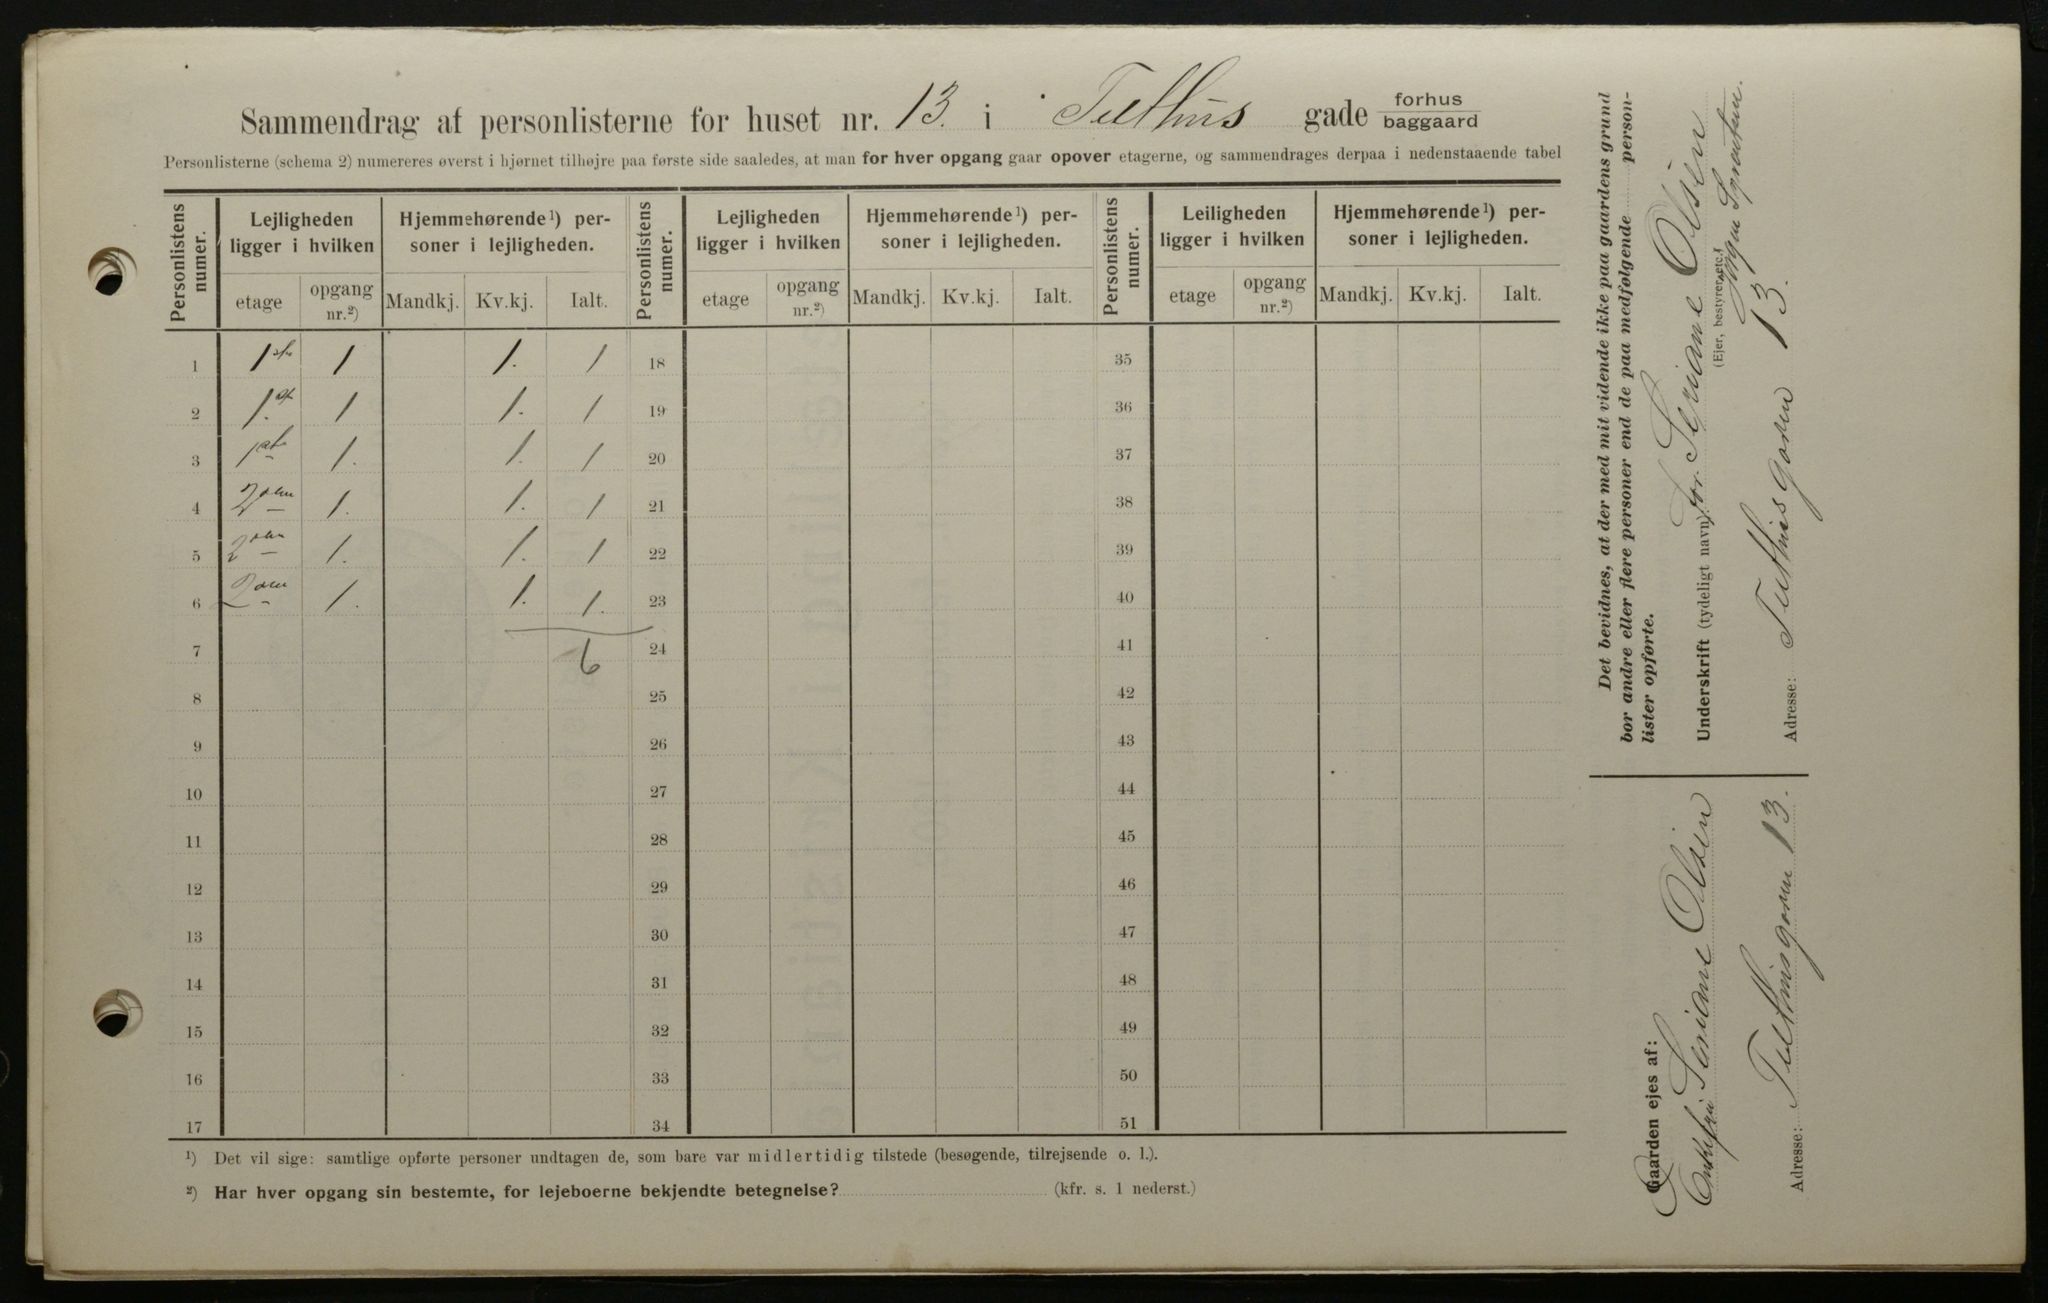 Sammendrag af personlisterne for huset nr. 13. i Telthus gade forhus baggaard
Personlisterne (schema 2) numereres øverst i hjørnet tilhøjre paa første side saaledes, at man for hver opgang gaar opover etagerne, og sammendrages derpaa i nedenstaaende tabel
Personlistens numer. Lejligheden ligger i hvilken Hjemmehørende¹) personer i lejligheden. Personlistens numer. Lejligheden ligger i hvilken Hjemmehørende¹) personer i lejligheden. Personlistens numer. Leiligheden ligger i hvilken Hjemmehørende¹) personer i lejligheden.
etage opgang nr.²) Mandkj. Kv.kj. Ialt. etage opgang nr.²) Mandkj. Kv.kj. Ialt. etage opgang nr.²) Mandkj. Kv.kj. Ialt.
1 1ste 1 1. 1 18 35
2 1.st 1 1. 1 19 36
3 1ste 1. 1. 1 20 37
4 2den 1. 1. 1 21 38
5 2den 1. 1. 1 22 39
6 2den 1. 1. 1. 23 40
7 6 24 41
8 25 42
9 26 43
10 27 44
11 28 45
12 29 46
13 30 47
14 31 48
15 32 49
16 33 50
17 34 51
¹) Det vil sige: samtlige opførte personer undtagen de, som bare var midlertidig tilstede (besøgende, tilrejsende o. l.).
²) Har hver opgang sin bestemte, for lejeboerne bekjendte betegnelse? (kfr. s. 1 nederst.)
Det bevidnes, at der med mit vidende ikke paa gaardens grund
bor andre eller flere personer end de paa medfølgende person-
lister opførte.
Underskrift (tydeligt navn): for Seriane Olsen
(Ejer, bestyrer etc.)
Jørgen
Adresse: Telthusgaden 13.
Gaarden ejes af:
Enkefru Seriane Olsen
Adresse: Telthusgaden 13.